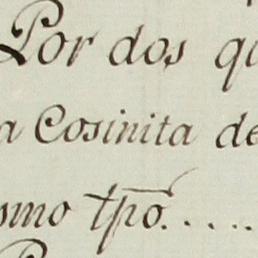 Por dos qu
a Cosinita de
smo tpō.....